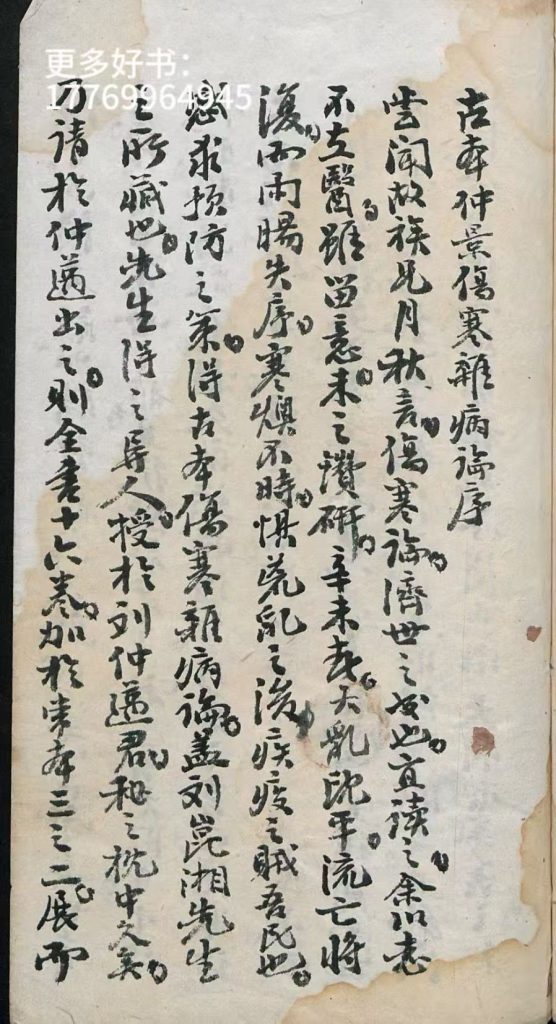 更多好书：
17769964945
古本仲景傷寒雜病論序
嘗聞故族兄月秋言傷寒論濟世之書也宜讀之余以志
不在醫雖留意未之讚研辛未春大亂既平流亡將
復而雨暘失序寒燠不時懼荒亂之後疾疫之賊吾民也
思求預防之策得古本傷寒雜病論蓋刘崑湘先生
之所藏也先生得之異人授於刘仲邁君秘之枕中久矣
乃請於仲邁出之則全書十六卷加於宋本三之二展而